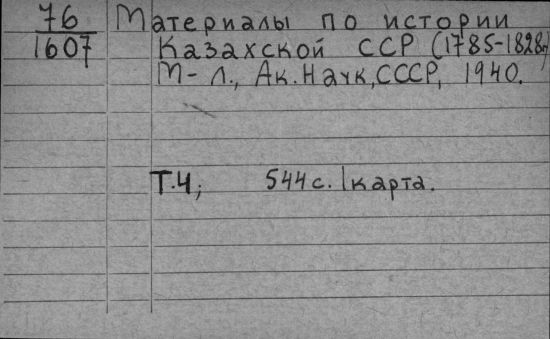 76 Материалы по истории
1607 Казахской ССР (1785-1828г)
М-Л., Ак. Наук, СССР, 1940.
Т.4; 544 с. 1 карта.